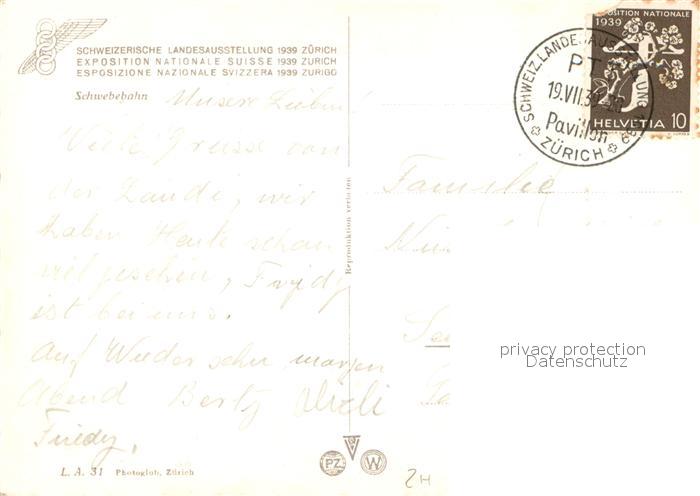 SCHWEIZERISCHE LANDESAUSSTELLUNG 1939 ZÜRICH
EXPOSITION NATIONALE SUISSE 1939 ZURICH
ESPOSIZIONE NAZIONALE SVIZZERA 1939 ZURIGO
Schwebebahn
Unsere Lieben
Viele Grüsse von
der Landi, wir
haben Heute schon
viel gesehen, Fridy
ist bei uns.
Auf Wieder sehn morgen
Abend Berty
Friedy.
L. A. 31 Photoglob, Zürich
Reproduktion verboten
PZ
W
2H
EXPOSITION NATIONALE
1939
HELVETIA 10
SCHWEIZ. LANDESAUSSTELLUNG 1939
PTT
19.VII.39
Pavillon
ZÜRICH
Familie
privacy protection
Datenschutz